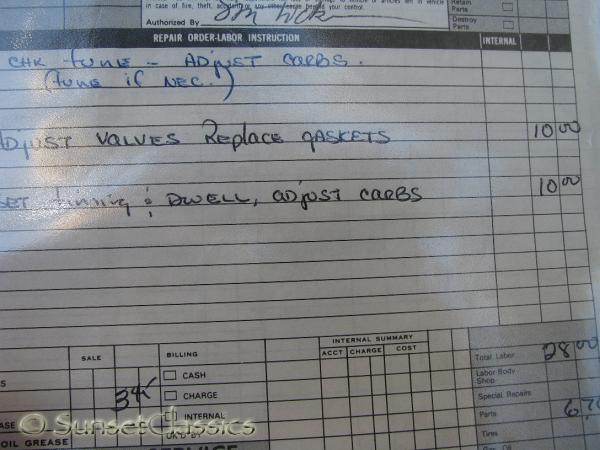 in case of fire, theft, accident or any other cause beyond your control.
Authorized By
Retain
Parts
Destroy
Parts
REPAIR ORDER-LABOR INSTRUCTION
INTERNAL
CHK tune - ADjust CARBS.
(tune if NEC.)
ADjUST VALVES Replace GASKETS 10 00
SET timing & DWELL, adjust CARBS 10 00
INTERNAL SUMMARY
ACCT CHARGE COST
SALE
BILLING
CASH
CHARGE
INTERNAL
OIL GREASE
Total Labor 28 00
Labor-Body
Shop
Special Repairs
Parts
Tires
© SunsetClassics